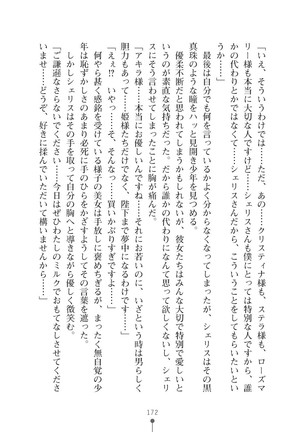 「いえ、そういうわけでは……。ただ、あの……クリスティナ様も、ステラ様も、ローズマ
リー様も本当に大切な人ですけど……シェリスさんも僕にとっては特別な人ですから、誰
かの代わりとかではなくて……シェリスさんだから、こういうことをしてもらってるって
いうか……」
最後は自分でも何を言っているかよく分からなくなってしまった。
優柔不断だと思われてしまうかもしれないが、彼女たちはみんな大切で特別で愛しい。
いうのが素直な気持ちだった。だから誰の代わりになんて思って欲しくないし、シェリ
スにそう言わせてしまったことに胸が痛んだ。そんなアキラに、シェリスはその黒真珠の
ような瞳をハッと見開き少年を見つめる。
「アキラ様……本当にお優しいんですね。それにお若いのに、いざという時は男らしく
胆力もあって……姫様たちだけでなく、陛下まで夢中になるわけです……」
「えぇ!? いやっ……そんなっ……買いかぶりすぎですよっ……」
何やら甚く感銘を受けている様子の美女は手放しに褒めちぎるが、まったく無自覚の少
年は恥ずかしさのあまり必死に手のひらをかざすようにしてその言葉を遮った。
するとシェリスはその手を取って自分の胸へと導きながら優しく微笑む。
「ご謙遜なさらずに……今日はぜひわたしのミルクでおもてなしさせてくださ
いませ……どうぞ、好きに揉んでいただいて構いませんから……」
172